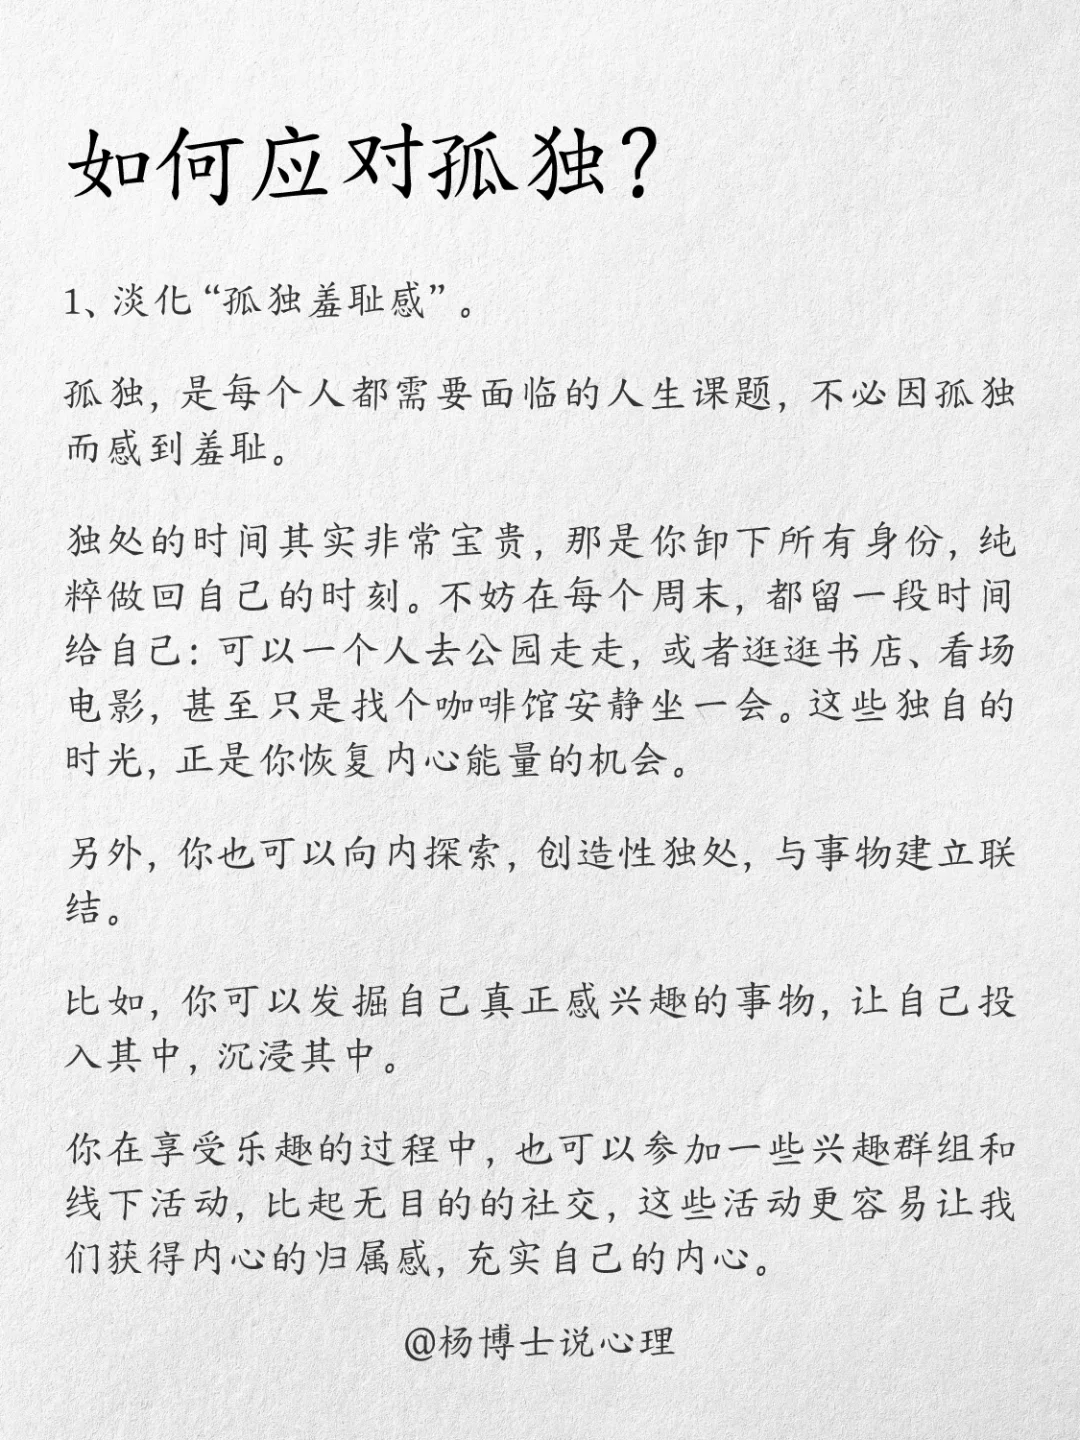 如何应对孤独？
1、淡化“孤独羞耻感”。
孤独，是每个人都需要面临的人生课题，不必因孤独
而感到羞耻。
独处的时间其实非常宝贵，那是你卸下所有身份，纯
粹做回自己的时刻。不妨在每个周末，都留一段时间
给自己：可以一个人去公园走走，或者逛逛书店、看场
电影，甚至只是找个咖啡馆安静坐一会。这些独自的
时光，正是你恢复内心能量的机会。
另外，你也可以向内探索，创造性独处，与事物建立联
结。
比如，你可以发掘自己真正感兴趣的事物，让自己投
入其中，沉浸其中。
你在享受乐趣的过程中，也可以参加一些兴趣群组和
线下活动，比起无目的的社交，这些活动更容易让我
们获得内心的归属感，充实自己的内心。
@杨博士说心理